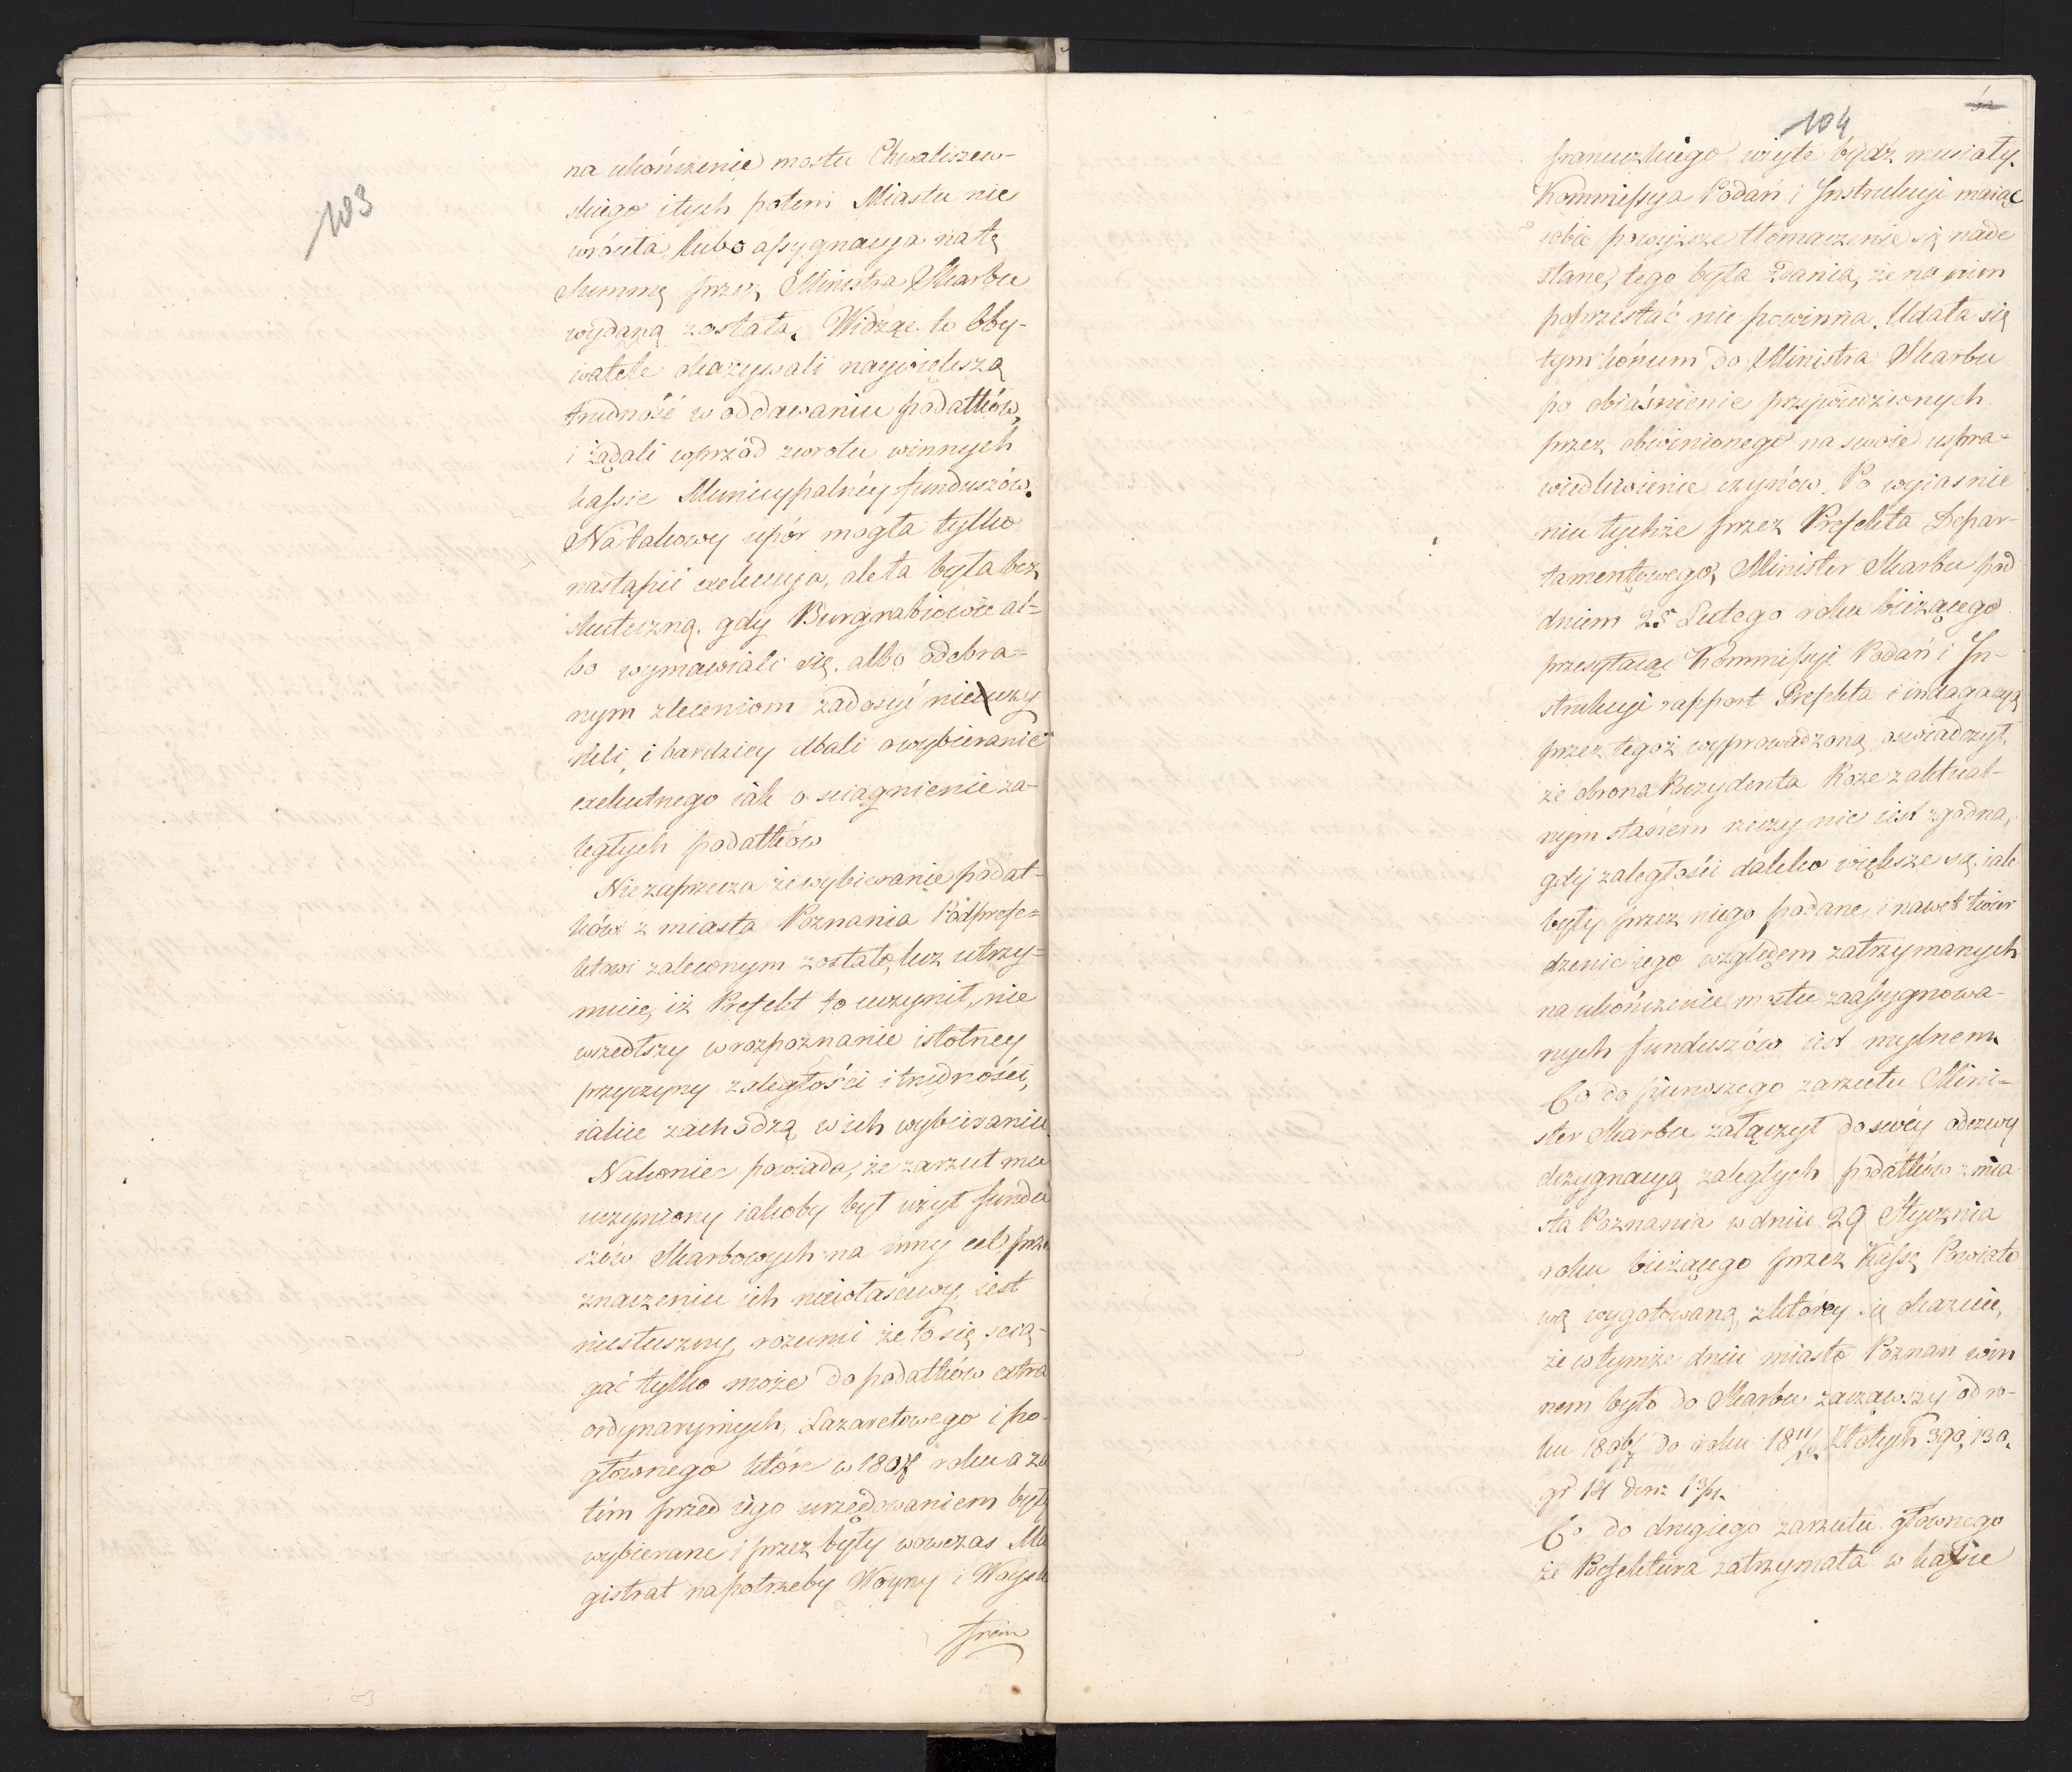 103
na ukończenie mostu Chwaliszew-
skiego i tych potem Miastu nie
wróciła, lubo assygnacya na tę
summę przez Ministra Skarbu
wydaną została. Widząc to Oby-
watele okazywali naywiększą
trudność w oddawaniu podatków,
i żądali wprzód zwrotu winnych
kassie Municypalnéy funduszów.
Na takowy upór mogła tylko
nastąpić exekucya, ale ta była bez
skuteczną, gdy Burgrabiowie al-
bo wymawiali się, albo odebra-
nym zleceniom zadosyć nie uczy
nili, i bardziey dbali o wybieranie
exekutnego iak o sciągnienie za-
ległych podatków
Niezaprzecza że wybieranie podat-
ków z miasta Poznania Podprefe-
ktowi zaleconym zostało, lecz utrzy-
muie, iż Prefekt to uczynił, nie
wszedłszy w rozpoznanie istotney
przyczyny zaległości i trudności,
iakie zachodzą w ich wybieraniu
Nakoniec powiada, że zarzut mu
uczyniony iakoby był użył fundu
szów Skarbowych na inny cel prze
znaczeniu ich niewłaściwy, iest
niesłuszny, rozumi że to się ścią-
gać tylko może do podatków extra
ordynaryinych, Lazaretowego i po-
głownego które w 1807 roku a za
tém przed iego urzędowaniem były
wybierane i przez były wowczas Ma
gistrat na potrzeby Woyny i Woysk
fran
104
francuzkiego użyte bydź musiały.
Kommissya Podań i Instrukcyi maiąc
sobie powyższe tłomaczenie się nade
słane, tego była zdania, że na nim
poprzestać nie powinna. Udała się
tym końcem do Ministra Skarbu
po obiaśnienie przywiedzionych
przez obwinionego na swoie uspra-
wiedliwienie czynów. Po wyiasnie
niu tychże przez Prefekta Depar-
tamentowego, Minister Skarbu pod
dniem 25 Lutego roku bieżącego
przesyłaiąc Kommissyi Podań i In-
strukcyi rapport Prefekta i indagacyą
przez tegoż wyprowadzoną oswiadczył,
że obrona Prezydenta Roze z aktual-
nym stanem rzeczy nie iest zgodna,
gdy zaległości daleko większe są, iak
były przez niego podane, i nawet twier
dzenie iego względem zatrzymanych
na ukończenie mostu zaassygnowa-
nych funduszów iest mylnem.
Co do pierwszego zarzutu Mini-
ster Skarbu załączył do swéy odezwy
dezygnacyą zaległych podatków z mia
sta Poznania w dniu 29 Stycznia
roku bieżącego przez Kassę Powiato
wą wygotowaną, z którey się okazuie,
że w tymże dniu miasto Poznań win
nem było do Skarbu zacząwszy od ro-
ku 1806/7 do roku 1811/12 Złotych 390,130.
gr 14 den: 1 3/4.
Co do drugiego zarzutu głównego
że Prefektura zatrzymała w kassie